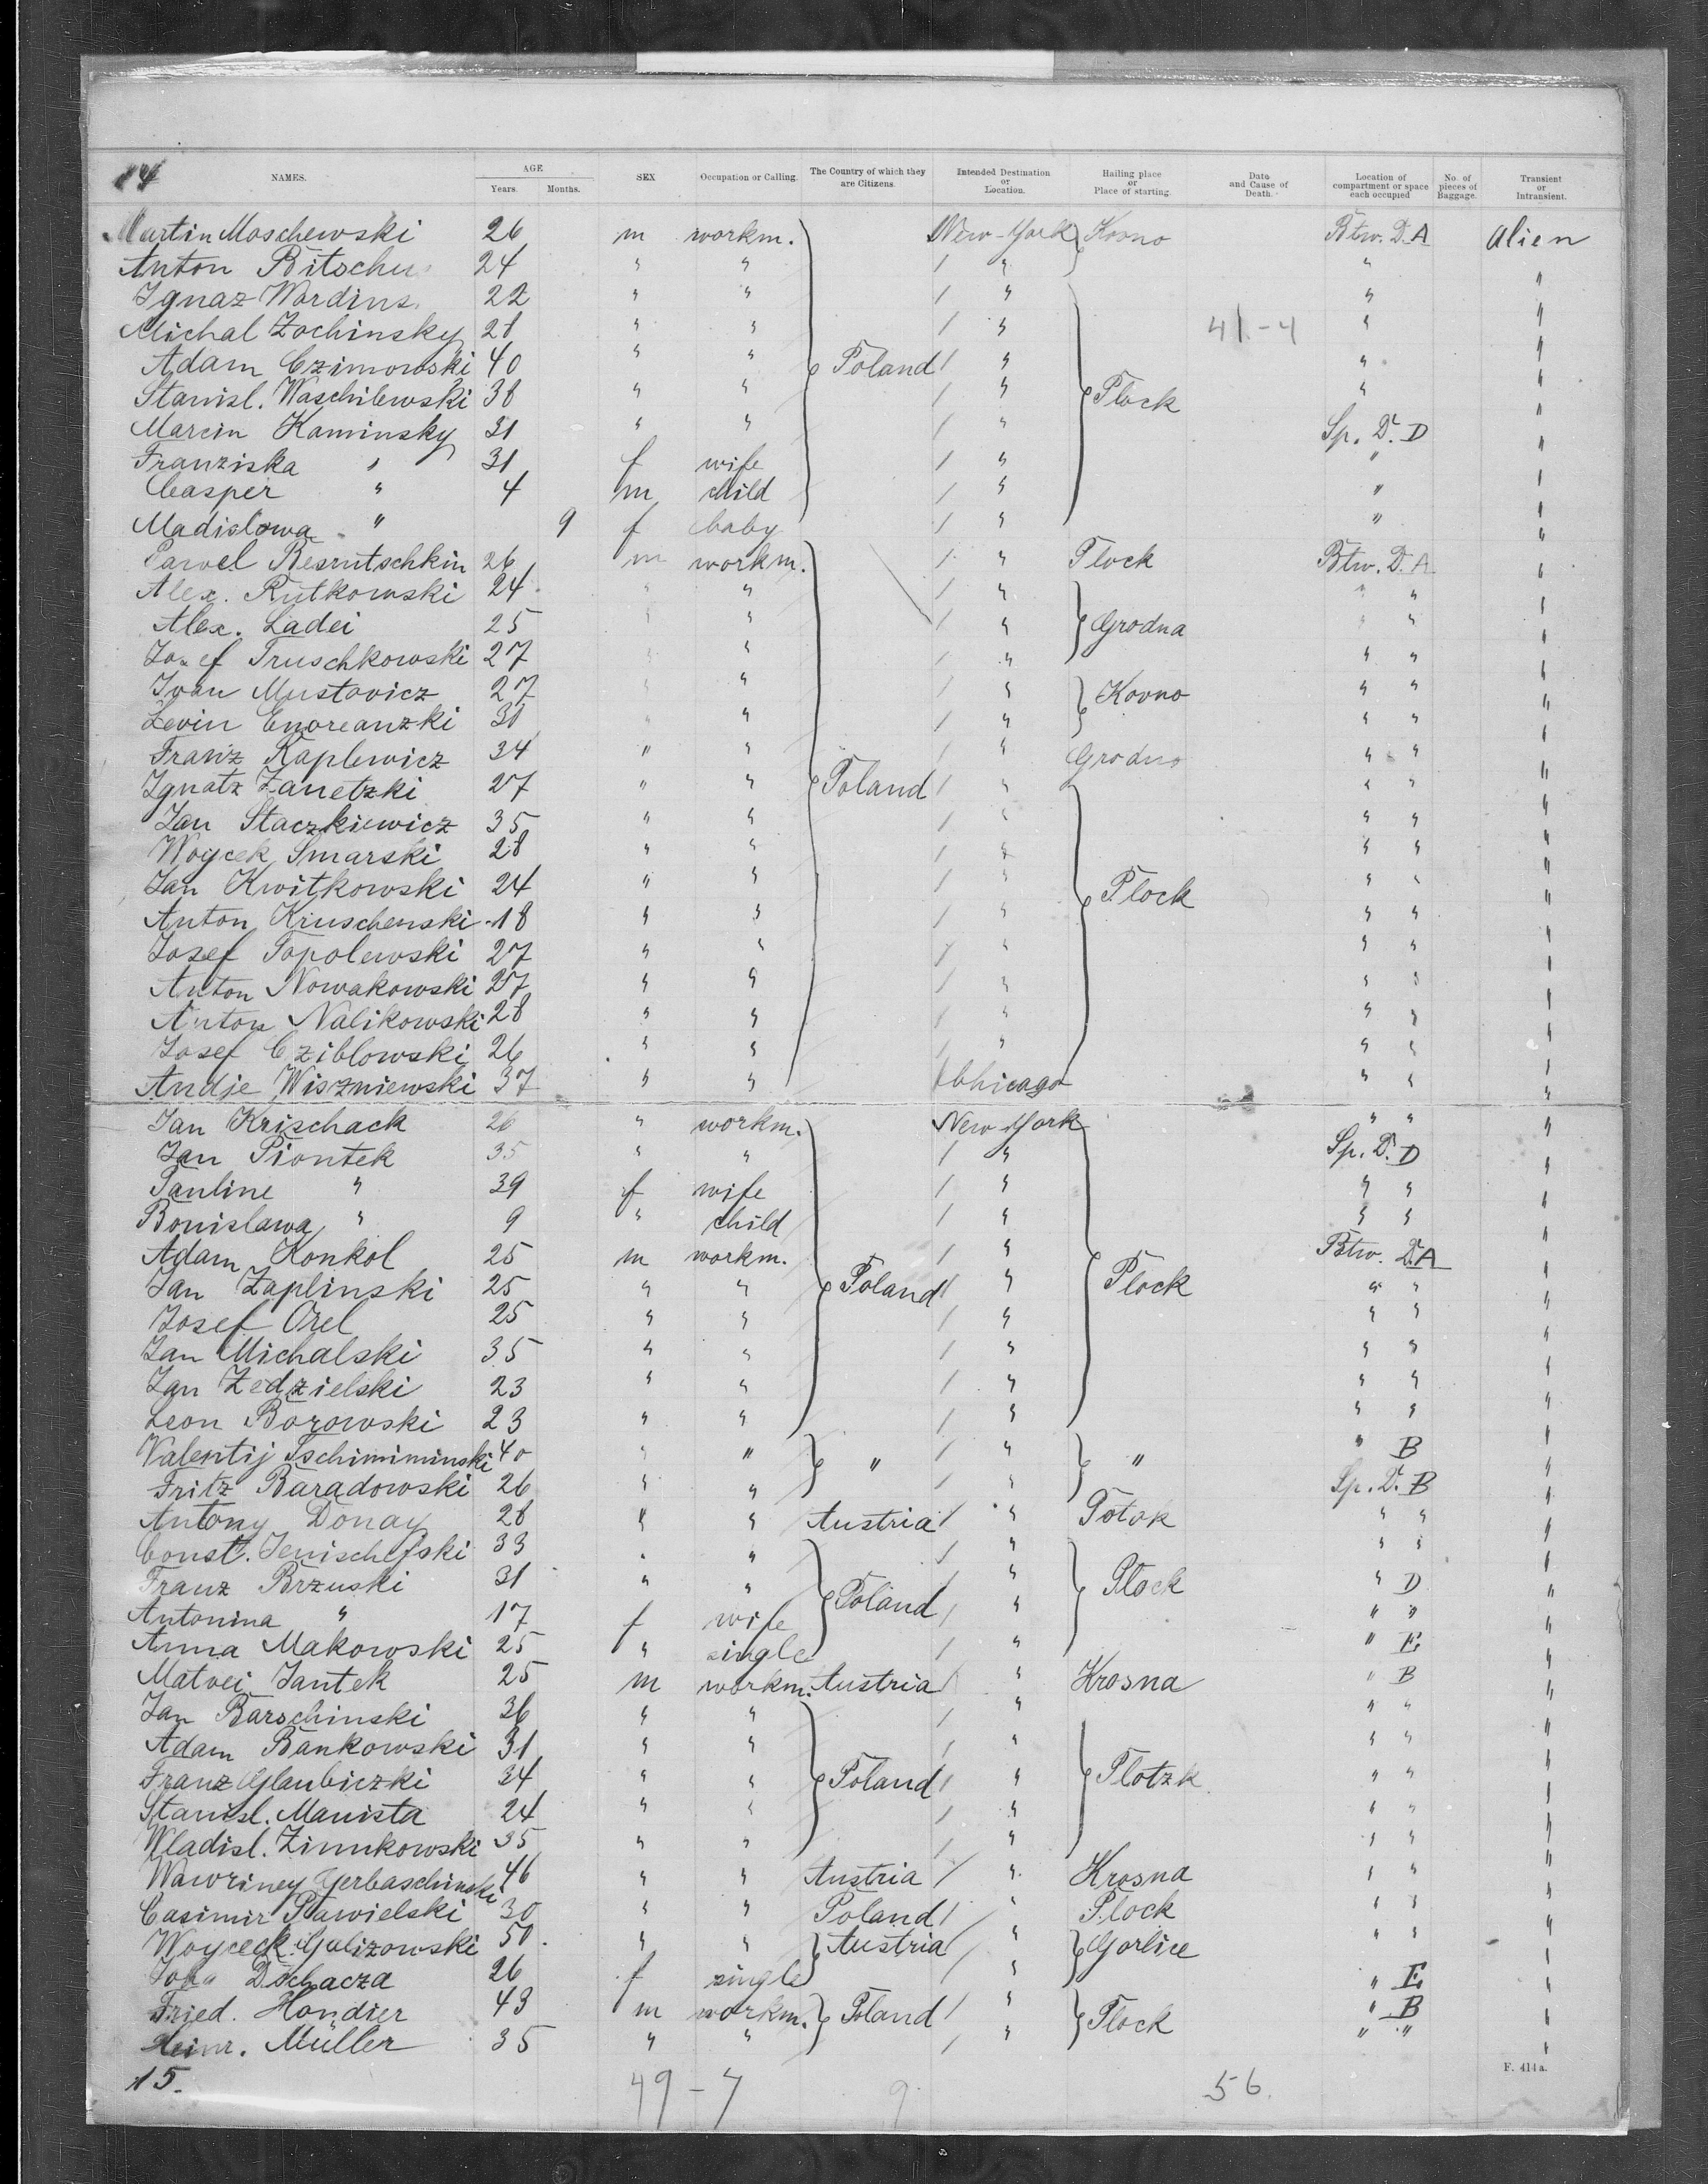 14 NAMES. AGE Years. Months. SEX Occupation or Calling. The Country of which they are Citizens. Intended Destination or Location. Hailing place or Place of starting. Date and Cause of Death. Location of compartment or space each occupied No. of pieces of Baggage. Transient or Intransient.
Martin Moschewski 26 m workm. New-York Kovno Btw. D. A Alien
Anton 24 " " / " " "
Ignaz 22 " " / " " "
Michal Zochinsky 28 " " / " 41-4 " "
Adam Czimowski 40 " " Poland / " " "
Stanisl. Waschilewski 38 " " / " Plock " "
Marcin Kaminsky 31 " " / " Sp. D. D "
Franziska " 31 f wife / " " "
Casper " 4 m child / " " "
Madislowa " 9 f baby / " " "
Pawel Besrutschkin 26 m workm. / " Plock Btw. D. A "
Alex. Rutkowski 24 " " / " " " "
Alex. Ladei 25 " " / " Grodna " " "
Josef Truschkowski 27 " " / " " " "
Ivan Mustovicz 27 " " / " Kovno " " "
Levin 31 " " / " " " "
Franz Kaplewicz 34 " " / " Grodno " " "
Ignatz Zanetzki 27 " " Poland / " " " "
Jan Staczkiewicz 35 " " / " " " "
Woycek Smarski 28 " " / " " " "
Jan Kwitkowski 24 " " / " Plock " " "
Anton Kruschenski 18 " " / " " " "
Josef Topolewski 27 " " / " " " "
Anton Nowakowski 27 " " / " " " "
Anton Nalikowski 28 " " / " " " "
Josef Cziblowski 26 " " / " " " "
Andje Wiszniewski 37 " " / Chicago " " "
Jan Krischack 26 " workm. New-York " " "
Jan Piontek 35 " " / " Sp. D. D "
Pauline " 39 f wife / " " " "
Bonislawa " 9 " child / " " " "
Adam Konkol 25 m workm. / " Btw. D. A "
Jan Zaplinski 25 " " Poland / " Plock " " "
Josef Orel 25 " " / " " " "
Jan Michalski 35 " " / " " " "
Jan Zedzielski 23 " " / " " " "
Leon Borowski 23 " " / " " " "
Valentij Tschimiminski 40 " " " / " " " B "
Fritz Baradowski 26 " " / " Sp. D. B "
Antony Donay 28 " " Austria / " Potok " " "
Const. Jenischefski 33 " " / " " " "
Franz Brzuski 31 " " Poland / " Plock " D "
Antonina " 17 f wife / " " " "
Anna Makowski 25 " single / " " E "
Matvei Jantek 25 m workm. Austria / " Krosna " B "
Jan Barschinski 36 " " / " " " "
Adam Bankowski 31 " " / " " " "
Franz Glaubiczki 34 " " Poland / " Plotzk " " "
Stanisl. Manista 24 " " / " " " "
Wladisl. Zimnkowski 35 " " / " " " "
Wawriney Gerbaschinski 46 " " Austria / " Krosna " " "
Casimir Pawielski 30 " " Poland / " Plock " " "
Woyceck Galizowski 50 " " Austria / " Gorlice " " "
Dschacza 26 f single / " " E "
Fried. Hondier 43 m workm. Poland / " Plock " B "
Heinr. Müller 35 " " / " " " "
F. 414 a.
15. 49-7 9 56.